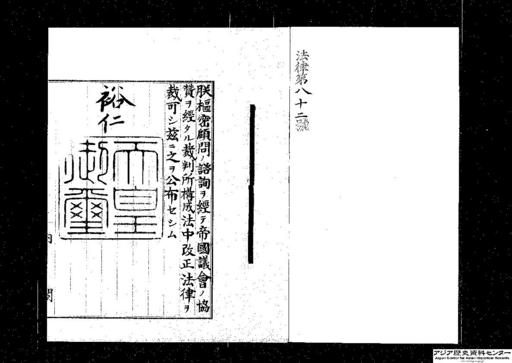 法律第八十二號
朕樞密顧問ノ諮詢ヲ經テ帝國議會ノ協
贊ヲ經タル裁判所構成法中改正法律ヲ
裁可シ玆ニ之ヲ公布セシム
裕仁
天皇
御璽
内閣
アジア歴史資料センター
Japan Center for Asian Historical Records